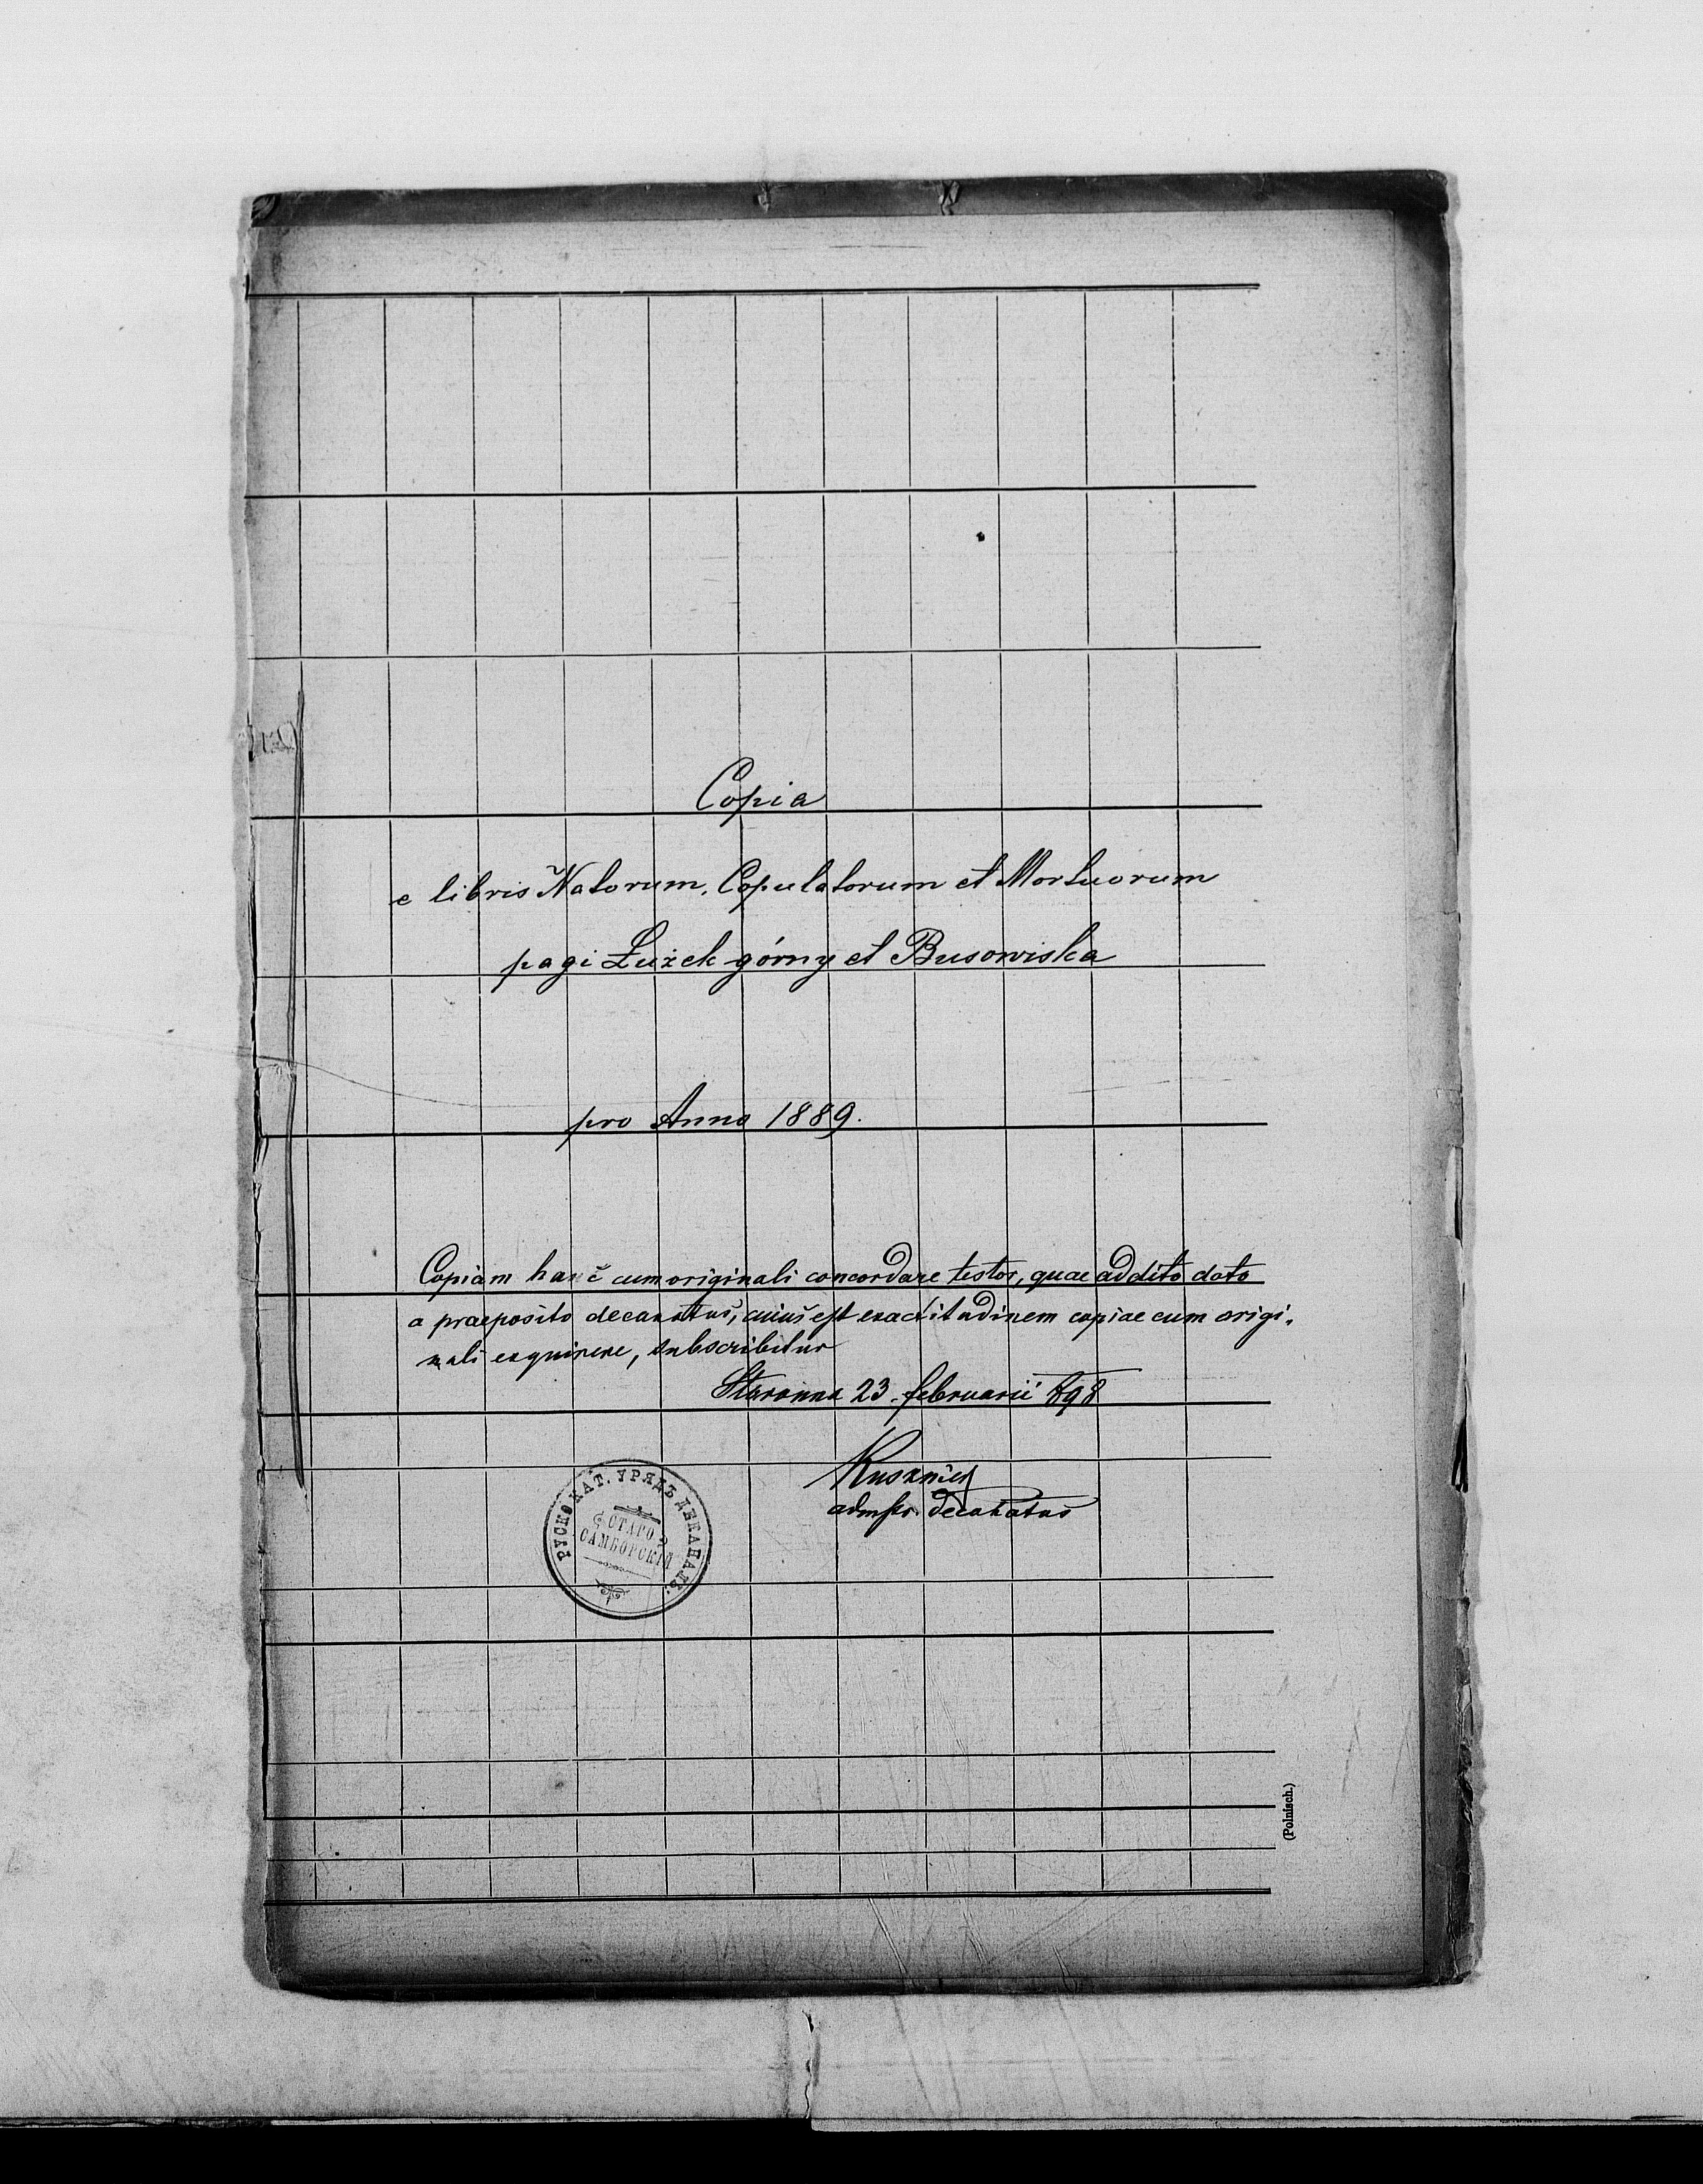 Copia
e libris Natorum, Copulatorum et Mortuorum
pagi Łużek górny et Busowiska
pro Anno 1889.
Copiam hanc cum originali concordare testor, quae addito dato
a praeposito decanatus, cuius est exactitudinem copiae cum origi-
nali exquirere, subscribitur
23 februarii 898
admstr. decanatus
РУСКО КАТ. УРЯДЪ ДЕКАНАЛЬ.
СТАРО
САМБОРСКІЙ
(Polnisch.)